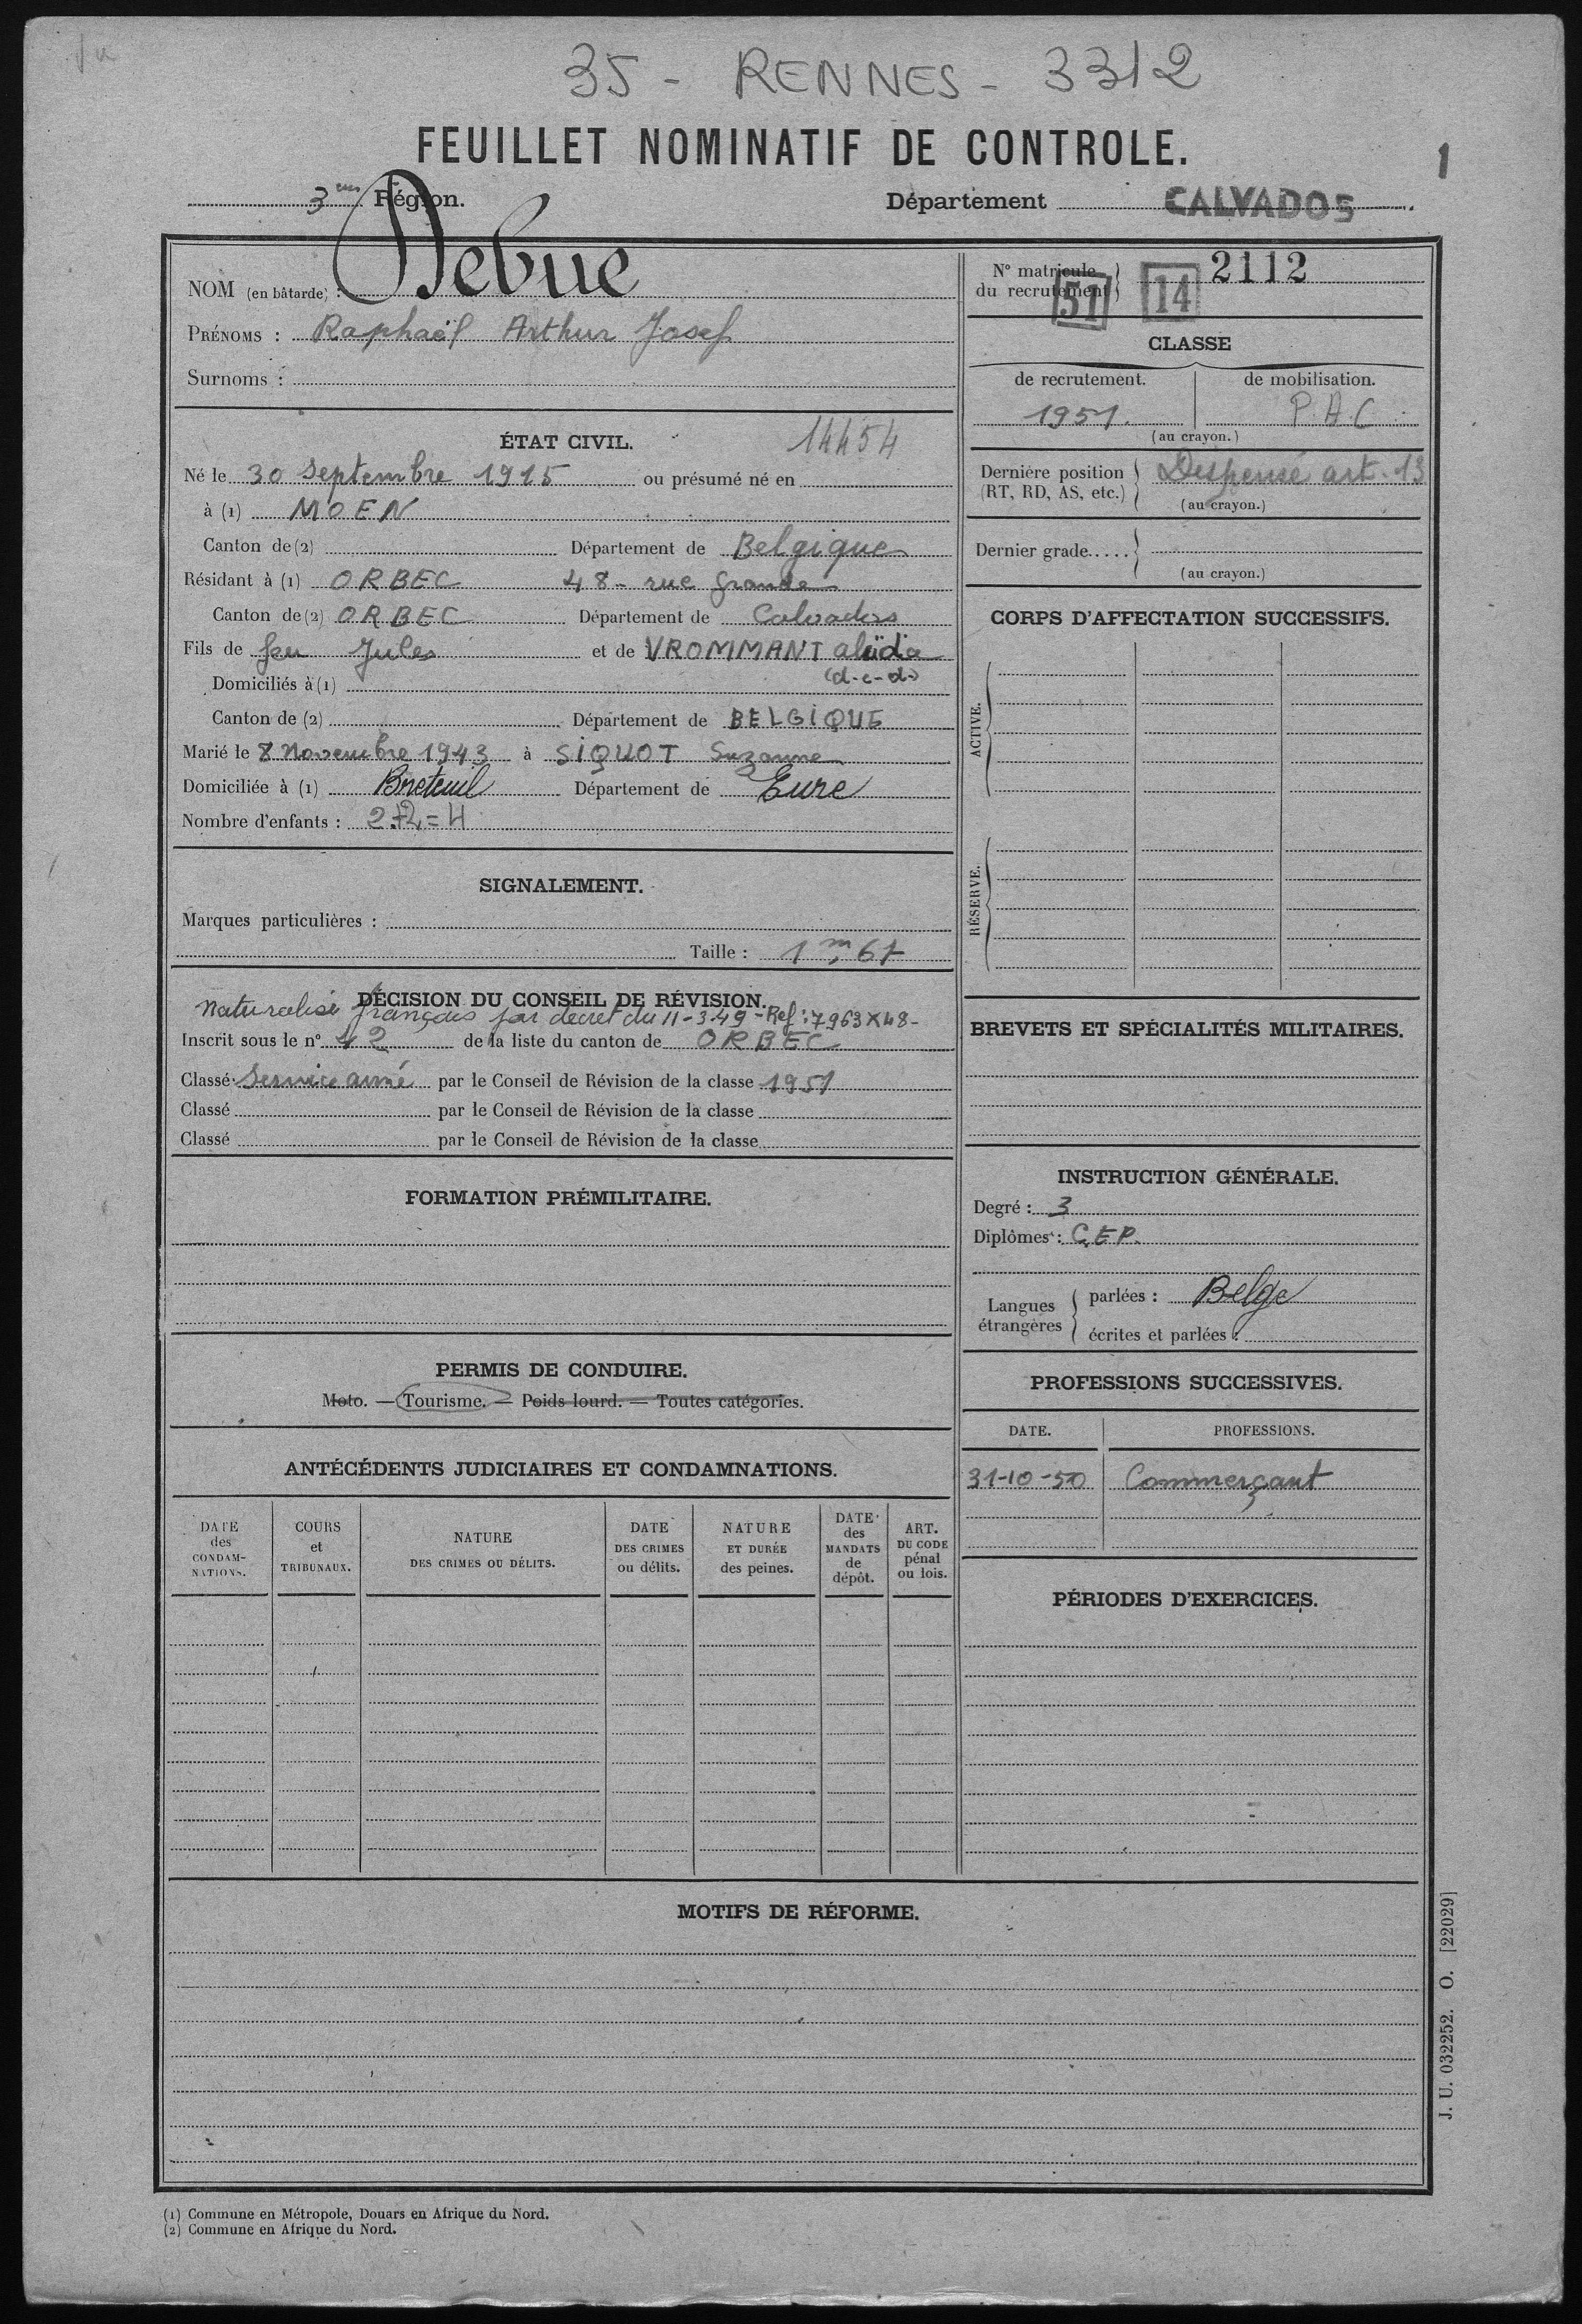 35 - RENNES - 3312
FEUILLET NOMINATIF DE CONTROLE.
1
3 Région.
Département CALVADOS
NOM (en bâtarde) : Debue
PRÉNOMS : Raphaël Arthur Josef
Surnoms :
ÉTAT CIVIL. 14454
Né le 30 Septembre 1915 ou présumé né en
à (1) MOEN
Canton de (2) Département de Belgique
Résidant à (1) ORBEC 48 - rue Grande
Canton de (2) ORBEC Département de Calvados
Fils de feu Jules et de VROMMANT
(d-c-d)
Domiciliés à (1)
Canton de (2) Département de BELGIQUE
Marié le 8 Novembre 1943 à SIQUOT Suzanne
Domiciliée à (1) Breteuil Département de Eure
Nombre d'enfants : 2+2=4
SIGNALEMENT.
Marques particulières :
Taille : 1 m 67
DÉCISION DU CONSEIL DE RÉVISION.
Naturalisé français par décret du 11-3-49 - Ref : 7963X48-
Inscrit sous le n° 42 de la liste du canton de ORBEC
Classé Service armé par le Conseil de Révision de la classe 1951
Classé par le Conseil de Révision de la classe
Classé par le Conseil de Révision de la classe
FORMATION PRÉMILITAIRE.
PERMIS DE CONDUIRE.
Moto. — Tourisme. — Poids lourd. — Toutes catégories.
ANTÉCÉDENTS JUDICIAIRES ET CONDAMNATIONS.
DATE
des
CONDAM-
NATIONS.
COURS
et
TRIBUNAUX.
NATURE
DES CRIMES OU DÉLITS.
DATE
DES CRIMES
ou délits.
NATURE
ET DURÉE
des peines.
DATE
des
MANDATS
de
dépôt.
ART.
DU CODE
pénal
ou lois.
N° matricule
du recrutement
51 14 2112
CLASSE
de recrutement. de mobilisation.
1951. P.A.C
(au crayon.)
Dernière position
(RT, RD, AS, etc.)
Dispensé art. 13
(au crayon.)
Dernier grade.....
(au crayon.)
CORPS D'AFFECTATION SUCCESSIFS.
ACTIVE.
RÉSERVE.
BREVETS ET SPÉCIALITÉS MILITAIRES.
INSTRUCTION GÉNÉRALE.
Degré : 3
Diplômes : C.E.P.
Langues
étrangères
parlées : Belge
écrites et parlées :
PROFESSIONS SUCCESSIVES.
DATE. PROFESSIONS.
31-10-50 Commerçant
PÉRIODES D'EXERCICES.
MOTIFS DE RÉFORME.
J. U. 032252. O. [22029]
(1) Commune en Métropole, Douars en Afrique du Nord.
(2) Commune en Afrique du Nord.